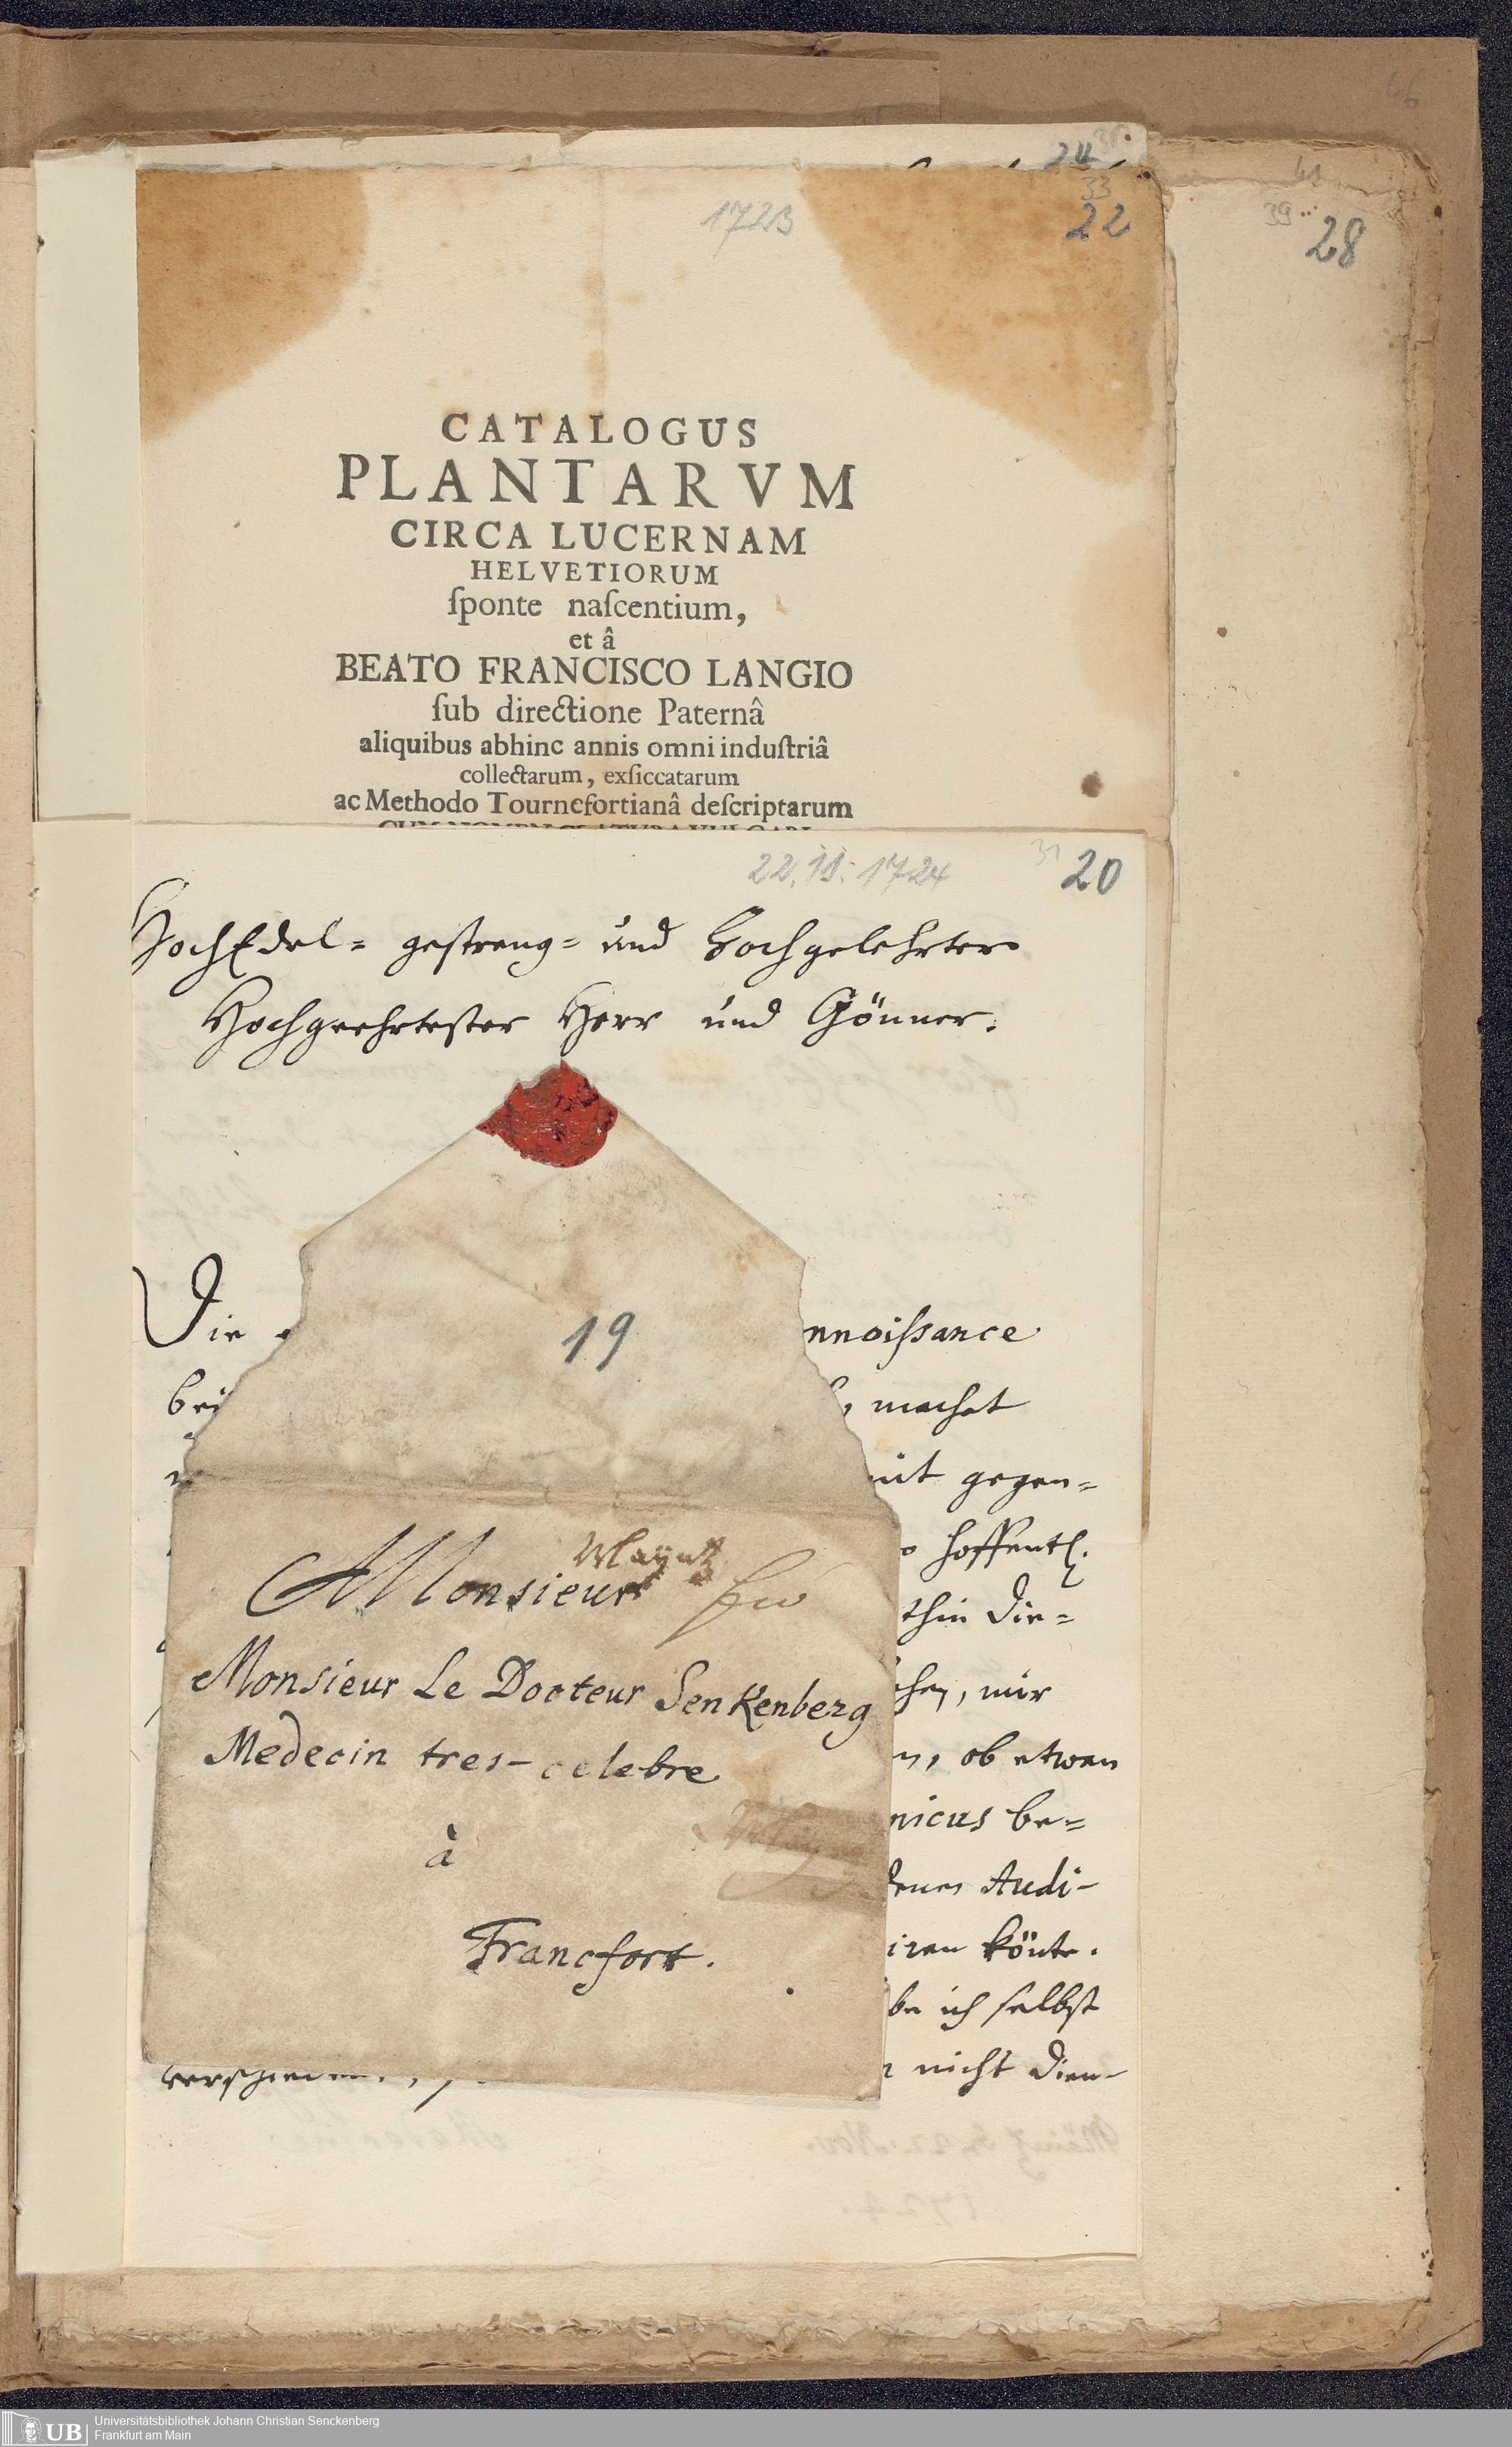 46
24
33
22
41
39
28
1723
CATALOGUS
PLANTARVM
CIRCA LUCERNAM
HELVETIORUM
ſponte naſcentium,
et â
BEATO FRANCISCO LANGIO
ſub directione Paternâ
aliquibus abhinc annis omni induſtriâ
collectarum, exſiccatarum
ac Methodo Tournefortianâ deſcriptarum
22. 11. 1724
31
20
HochEdel= gestreng= und Hochgelehrter
Hochgeehrtester Herr und Gönner.
Die
nnoissance
machet
mit gegen=
hoffentl.
thin die=
mir
ob etwan
nicus be=
Audi-
iren könte.
ich selbst
nicht dien-
19
Mayntz
Monsieur
Monsieur Le Docteur Senkenberg
Medecin tres-celebre
à
Francfort.
UB
Universitätsbibliothek Johann Christian Senckenberg
Frankfurt am Main